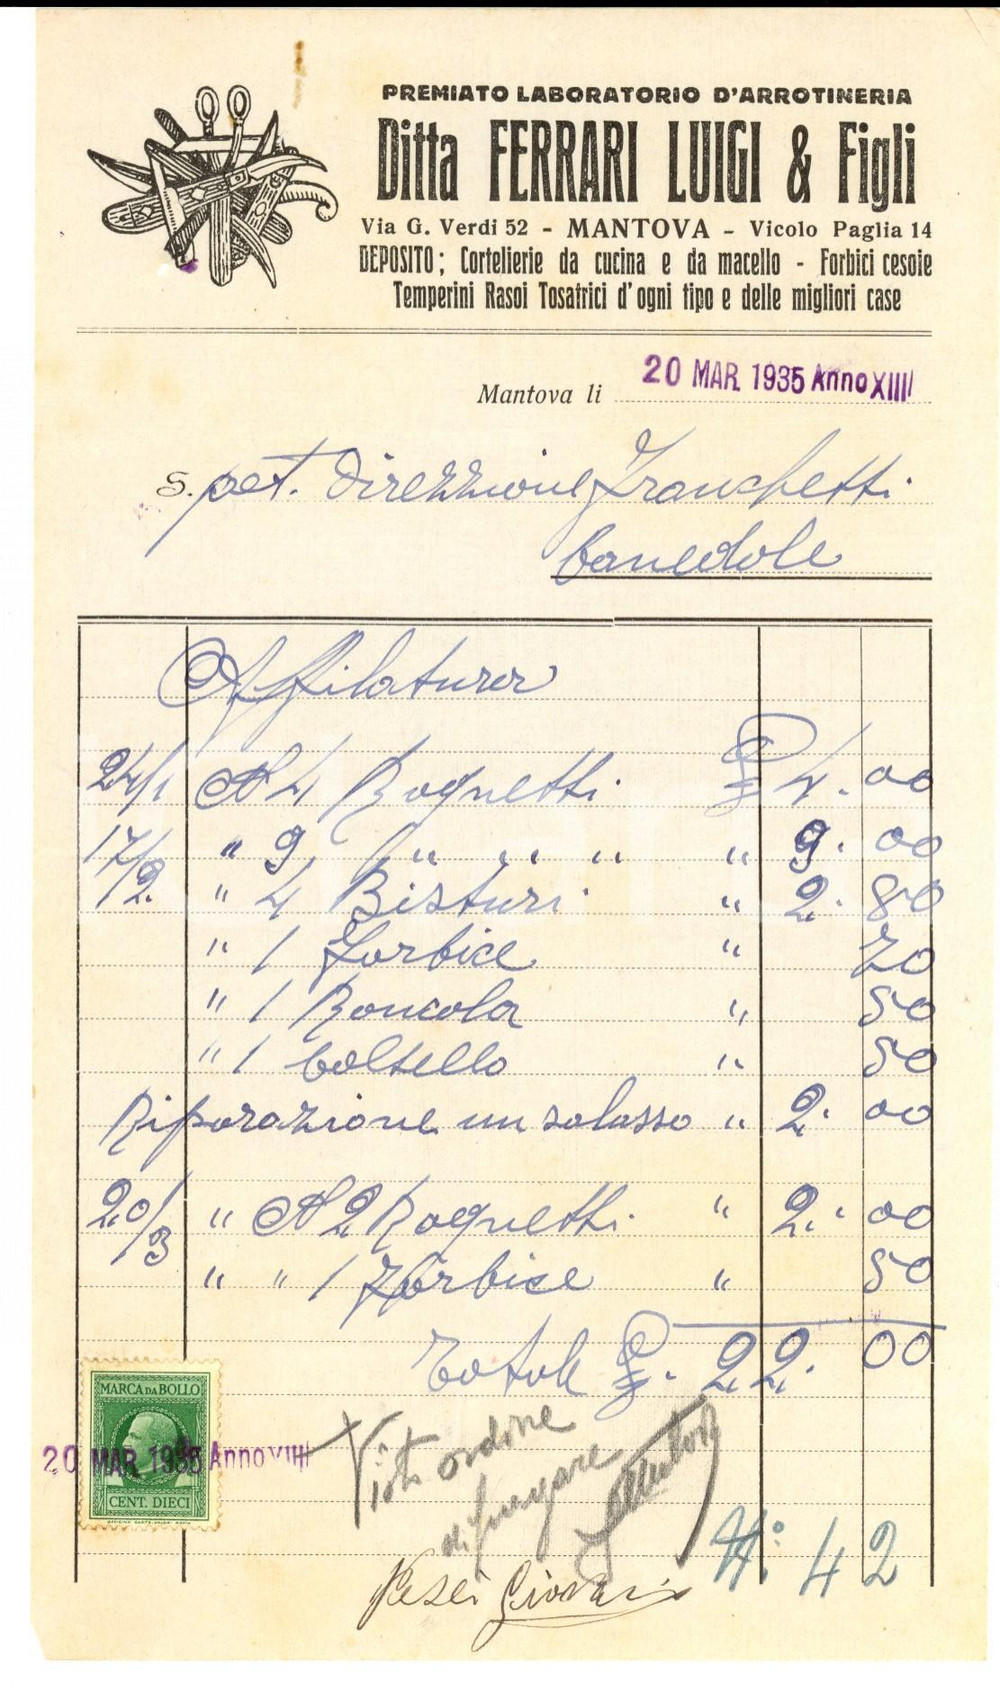 PREMIATO LABORATORIO D'ARROTINERIA
Ditta FERRARI LUIGI & Figli
Via G. Verdi 52 - MANTOVA - Vicolo Paglia 14
DEPOSITO; Cortelierie da cucina e da macello - Forbici cesoie
Temperini Rasoi Tosatrici d'ogni tipo e delle migliori case
Mantova li 20 MAR. 1935 Anno XIIII
S. pet. Direzzione Franchetti
Canedole
Affilatura
24/1 N 4 Rognetti £ 4. 00
17/2. " 9 " " " " " 9. 00
" 4 Bisturi " 2. 80
" 1 Forbice " 70
" 1 Roncola " 50
" 1 Coltello " 50
Riparazione un salasso " 2. 00
20/3 " N 2 Rognetti " 2. 00
" " 1 Forbice " 50
Totale £. 22. 00
MARCA DA BOLLO
20 MAR 1935 Anno XIIII
CENT. DIECI
Visto ordine
di pagare
Pesei Giovanni
N: 42